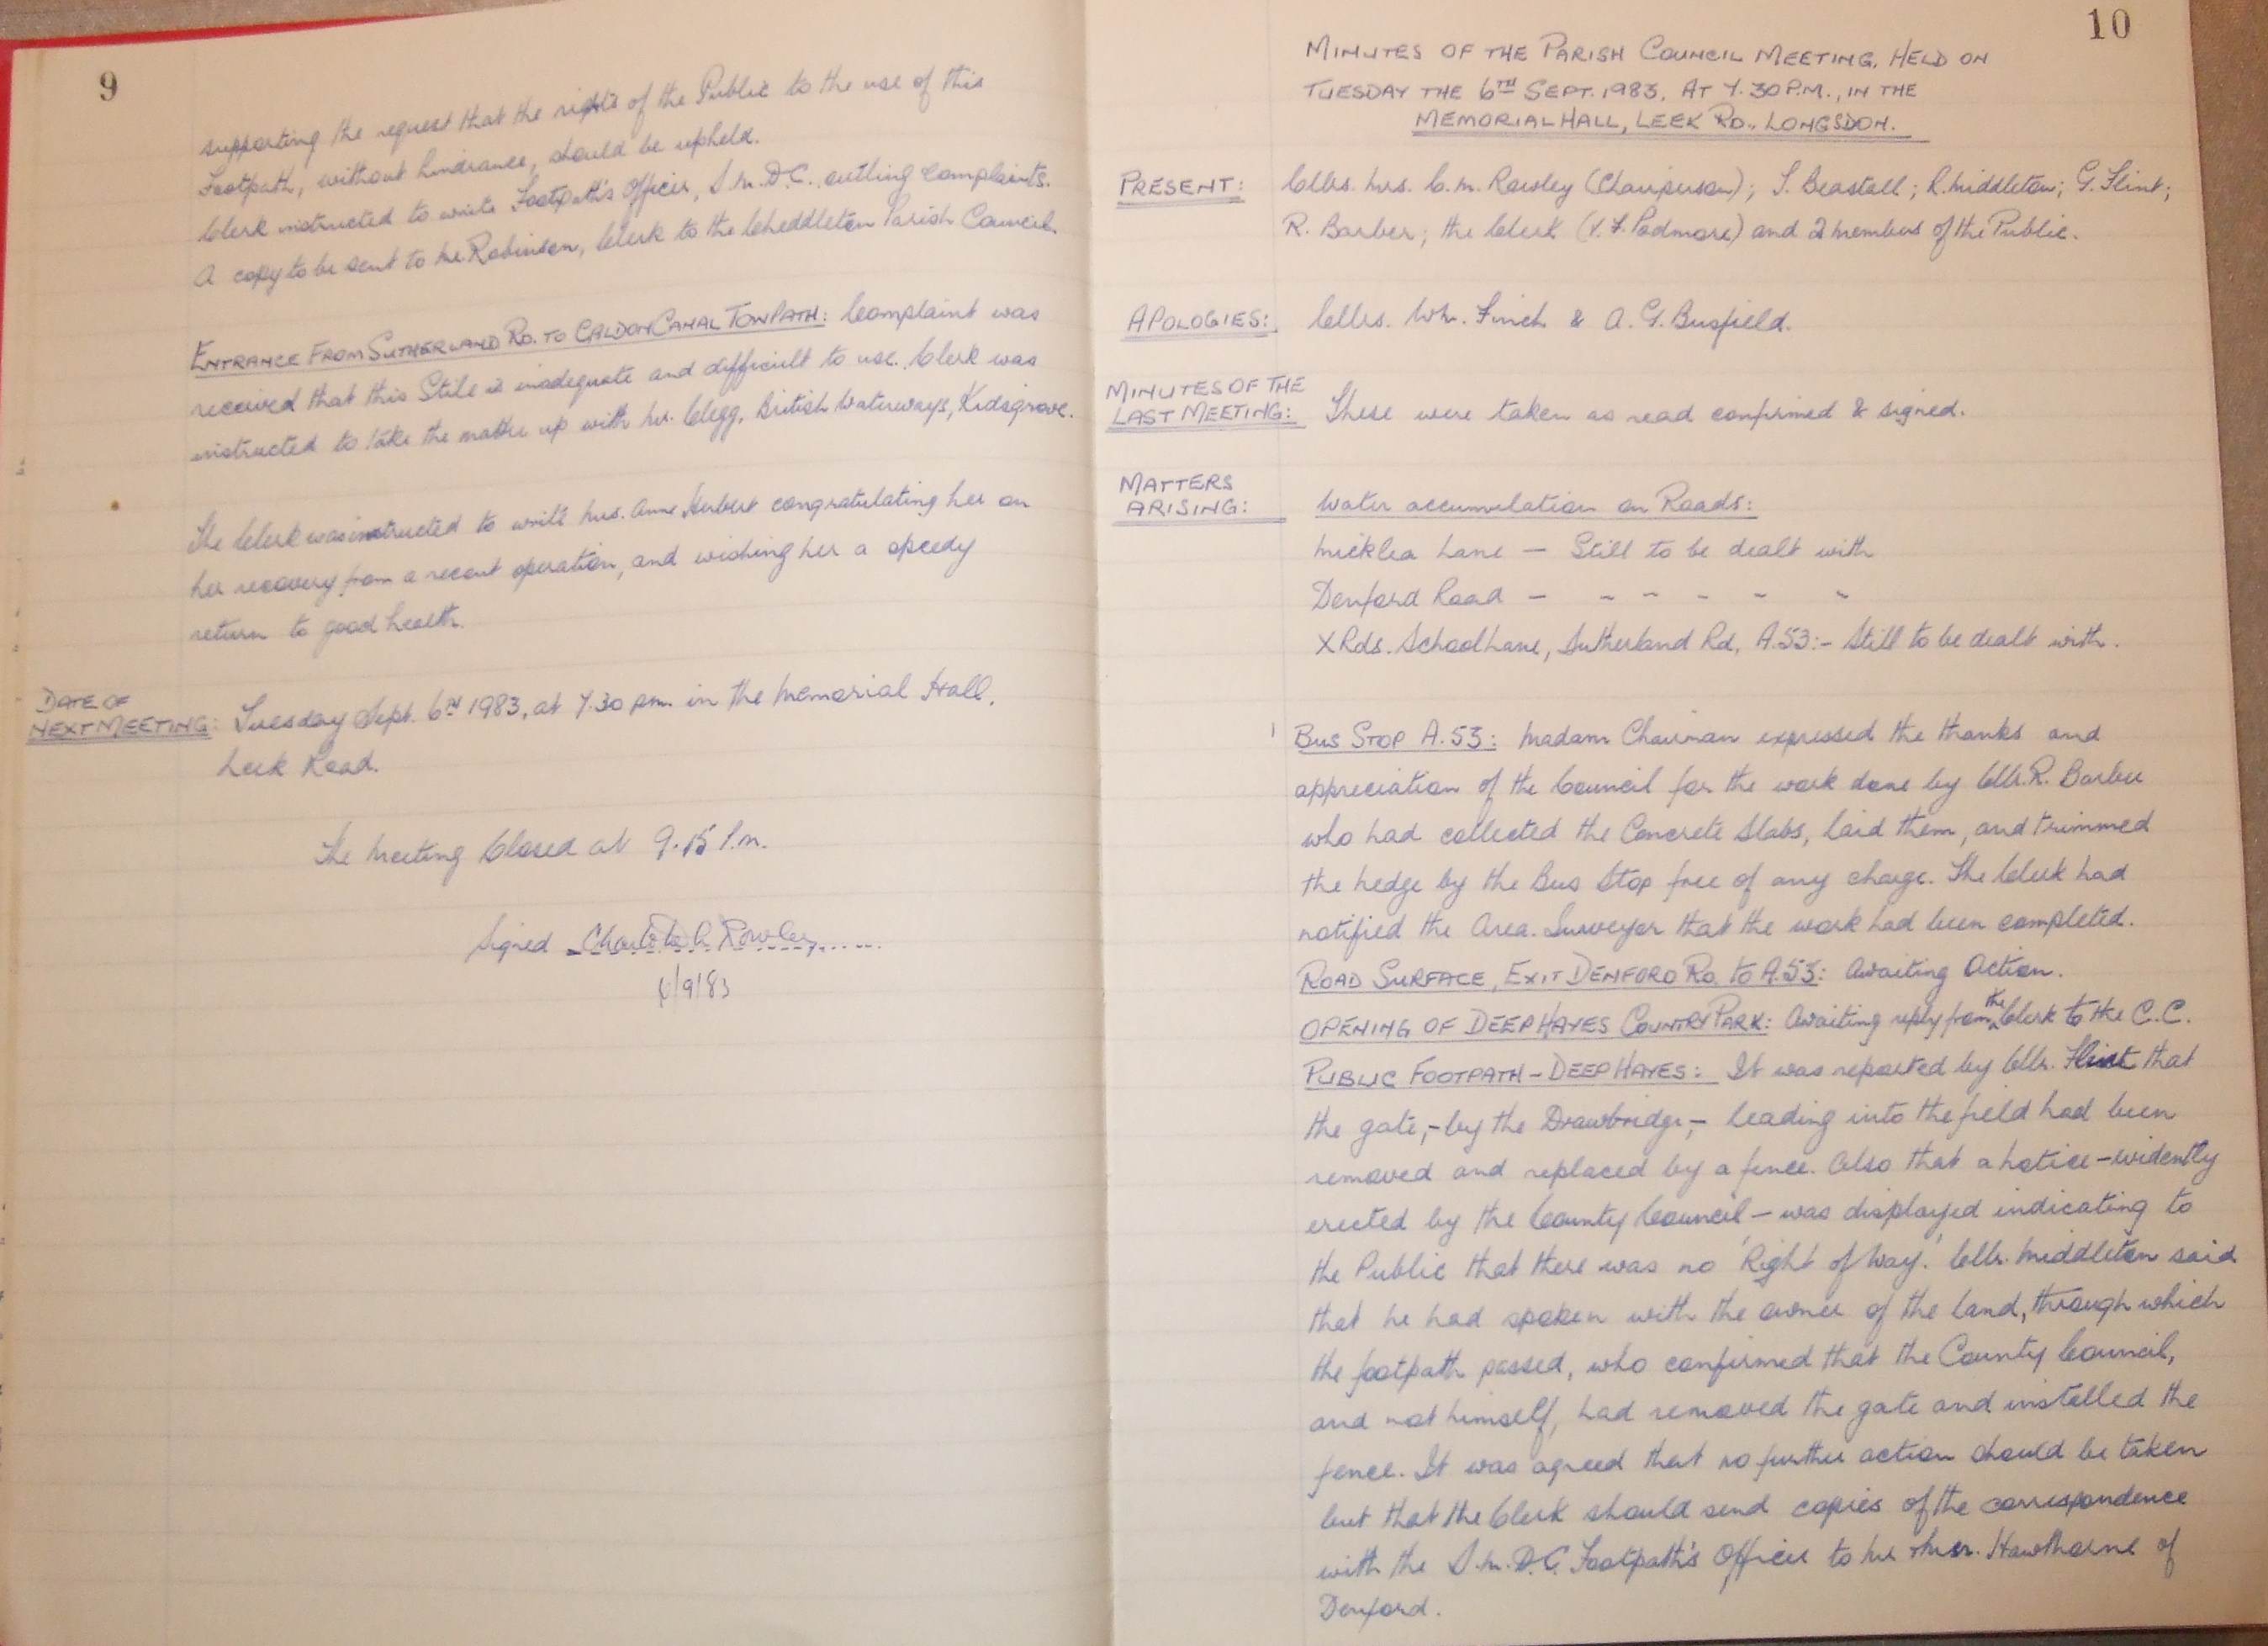 9
supporting the request that the rights of the Public to the use of this
Footpath, without hindrance, should be upheld.
Clerk instructed to write Footpath's Officer, S.M.D.C. outling complaints.
A copy to be sent to Mr Robinson, Clerk to the Cheddleton Parish Council.
ENTRANCE FROM SUTHERLAND RD. TO CALDON CANAL TOWPATH: Complaint was
received that this Stile is inadequate and difficult to use. Clerk was
instructed to take the matter up with Mr. Clegg, British Waterways, Kidsgrove.
The Clerk was instructed to write Mrs. Anne Herbert congratulating her on
her recovery from a recent operation, and wishing her a speedy
return to good health.
DATE OF
NEXT MEETING: Tuesday Sept. 6TH 1983, at 7.30 pm. in the Memorial Hall,
Leek Road.
The Meeting Closed at 9.15 P.m.
Signed Rowley
6/9/83
10
MINUTES OF THE PARISH COUNCIL MEETING, HELD ON
TUESDAY THE 6TH SEPT. 1983, AT 7.30 P.M., IN THE
MEMORIAL HALL, LEEK RD., LONGSDON.
PRESENT: Cllrs. Mrs. C.M. Rowley (Chairperson); S. Beastall; R. Middleton; G. Flint;
R. Barber; the Clerk (V.F. Padmore) and 2 members of the Public.
APOLOGIES: Cllrs. Wm. Finch & A.G. Busfield.
MINUTES OF THE
LAST MEETING: These were taken as read confirmed & signed.
MATTERS
ARISING: Water accumulation on Roads:
Micklea Lane - Still to be dealt with
Denford Road - " " " " "
X Rds. School Lane, Sutherland Rd, A.53:- Still to be dealt with.
BUS STOP A.53: Madam Chairman expressed the thanks and
appreciation of the Council for the work done by Cllr. R. Barber
who had collected the Concrete Slabs, laid them, and trimmed
the hedge by the Bus Stop free of any charge. The Clerk had
notified the Area. Surveyor that the work had been completed.
ROAD SURFACE, EXIT DENFORD RD. TO A.53: Awaiting Action.
OPENING OF DEEP HAYES COUNTRY PARK: Awaiting reply from the Clerk to the C.C.
PUBLIC FOOTPATH - DEEP HAYES: It was reported by Cllr. Flint that
the gate, - by the Drawbridge, - leading into the field had been
removed and replaced by a fence. Also that a Notice - evidently
erected by the County Council - was displayed indicating to
the Public that there was no 'Right of Way.' Cllr. Middleton said
that he had spoken with the owner of the land, through which
the footpath passed, who confirmed that the County Council,
and not himself, had removed the gate and installed the
fence. It was agreed that no further action should be taken
but that the Clerk should send copies of the correspondence
with the S.M.D.C. Footpath's Officer to Mr + Mrs. Hawthorne of
Denford.